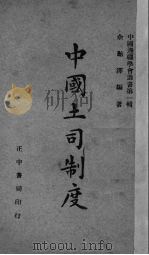 中國邊疆學會叢書第一輯
余貽澤編著
中國土司制度
正中書局印行
www.gohoedu.com